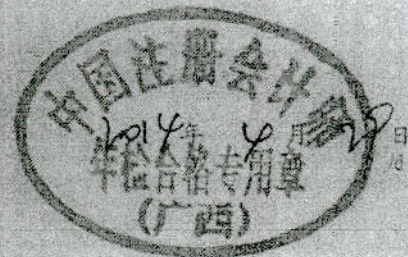 中国注册会计师
2014年4月28日
年检合格专用章
(广西)